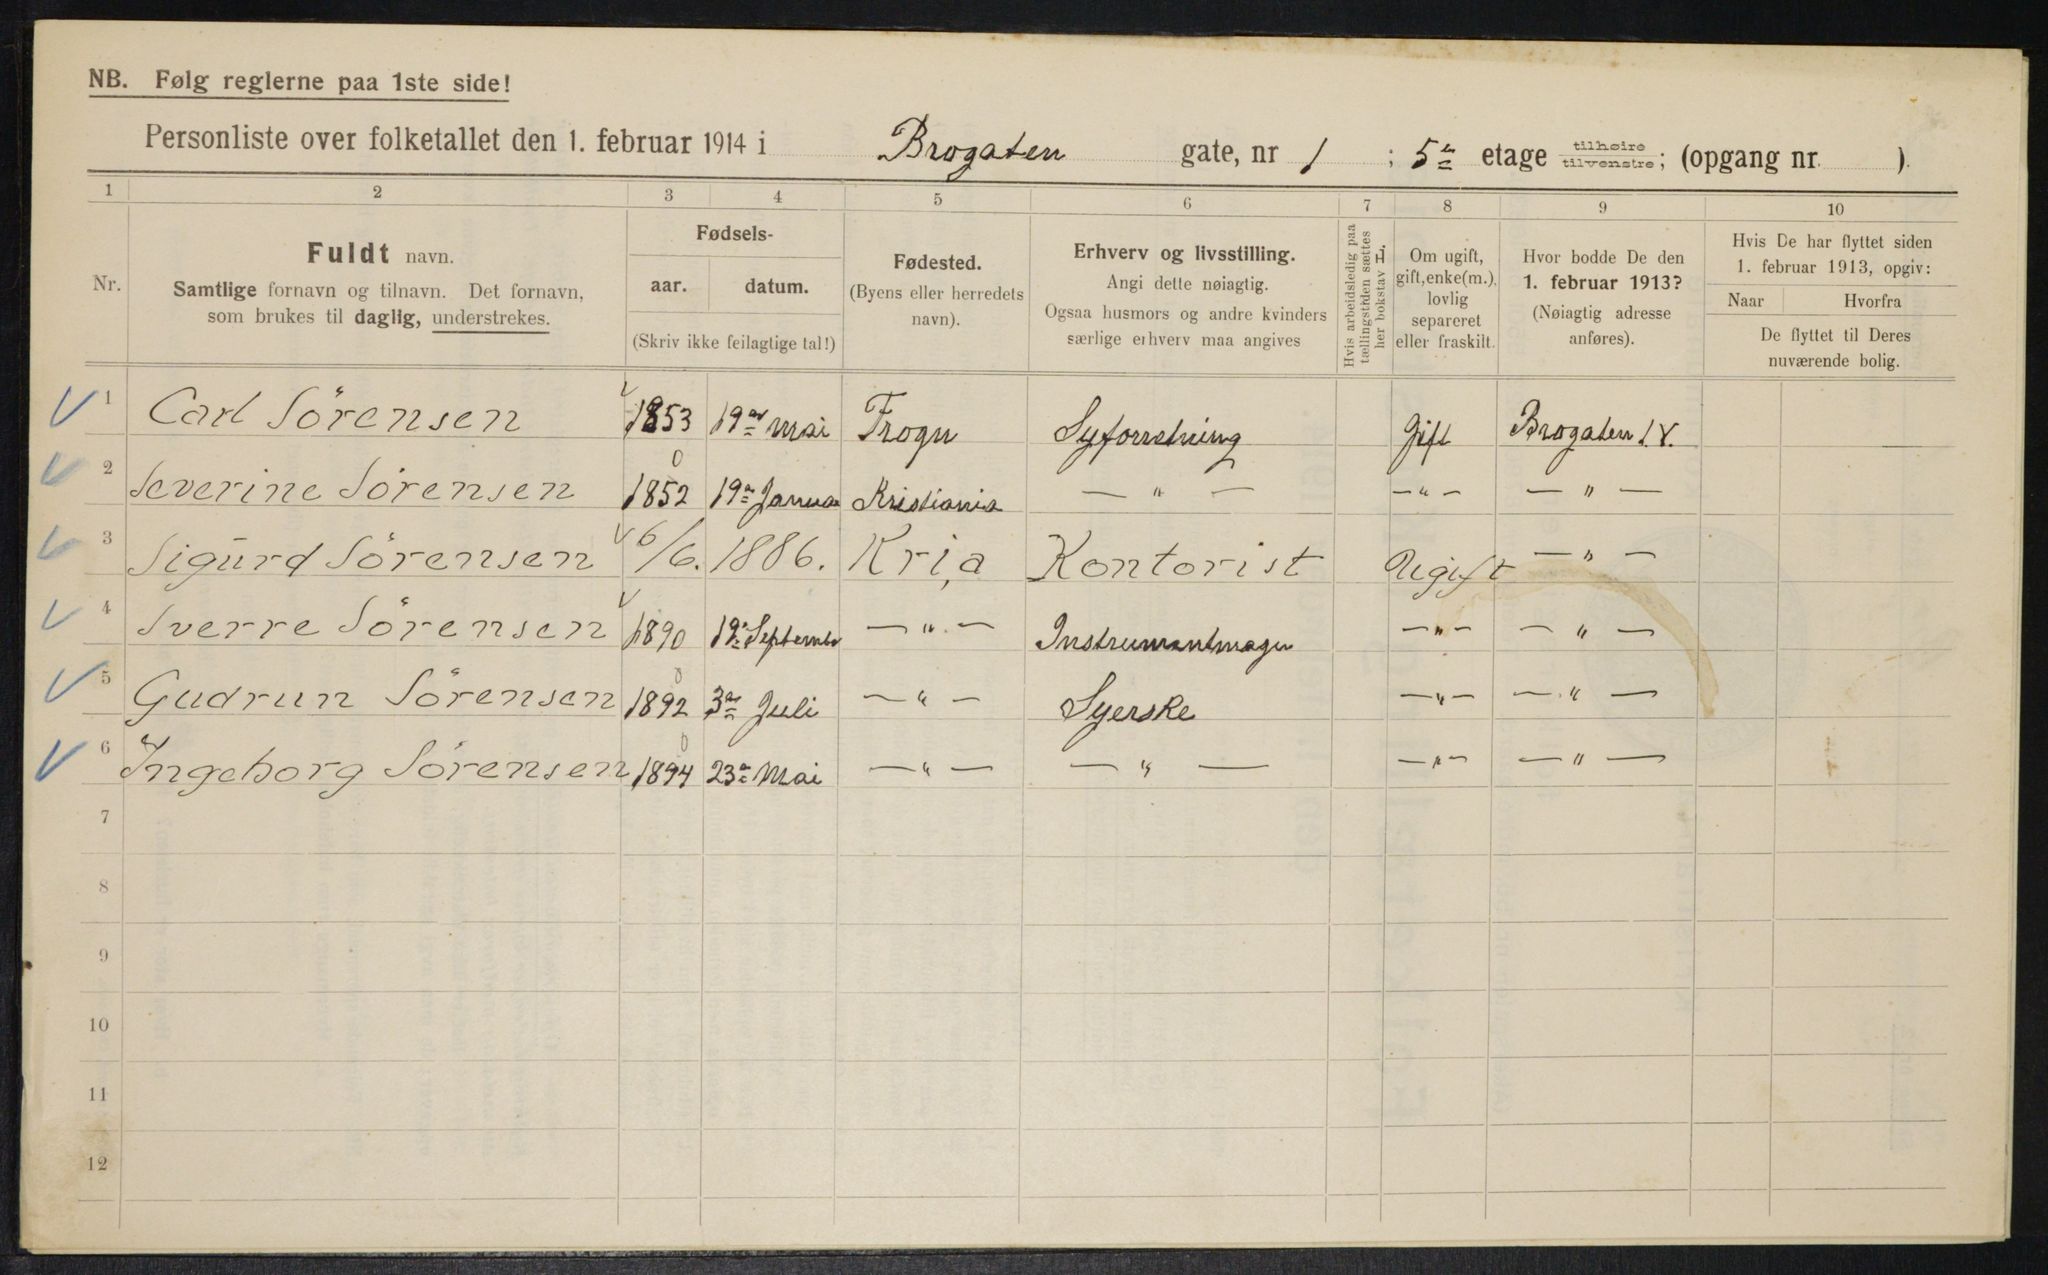 NB. Følg reglerne paa 1ste side!
Personliste over folketallet den 1. februar 1914 i Brogaten gate, nr 1 ; 5te etage tilhøire tilvenstre; (opgang nr. ).
1 2 3 4 5 6 7 8 9 10
Nr.
Fuldt navn.
Samtlige fornavn og tilnavn. Det fornavn,
som brukes til daglig, understrekes.
Fødsels-
aar. datum.
(Skriv ikke feilagtige tal!)
Fødested.
(Byens eller herredets
navn).
Erhverv og livsstilling.
Angi dette nøiagtig.
Ogsaa husmors og andre kvinders
særlige erhverv maa angives
Hvis arbeidsledig paa
tællingstiden sættes
her bokstav L.
Om ugift,
gift, enke(m.),
lovlig
separeret
eller fraskilt.
Hvor bodde De den
1. februar 1913?
(Nøiagtig adresse
anføres).
Hvis De har flyttet siden
1. februar 1913, opgiv:
Naar Hvorfra
De flyttet til Deres
nuværende bolig.
1 Carl Sörensen 1853 19de Mai Frogn Syforretning Gift Brogaten 1 V.
2 Severine Sörensen 1852 19de Januar Kristiania — " — — " — — " —
3 Sigurd Sörensen 6/6. 1886. Kri,a Kontorist Ugift — " —
4 Sverre Sörensen 1890 19de Septembr — " — Instrumentmager — " — — " —
5 Gudrun Sörensen 1892 3de Juli — " — Syerske — " — — " —
6 Ingeborg Sörensen 1894 23de Mai — " — — " — — " — — " —
7
8
9
10
11
12